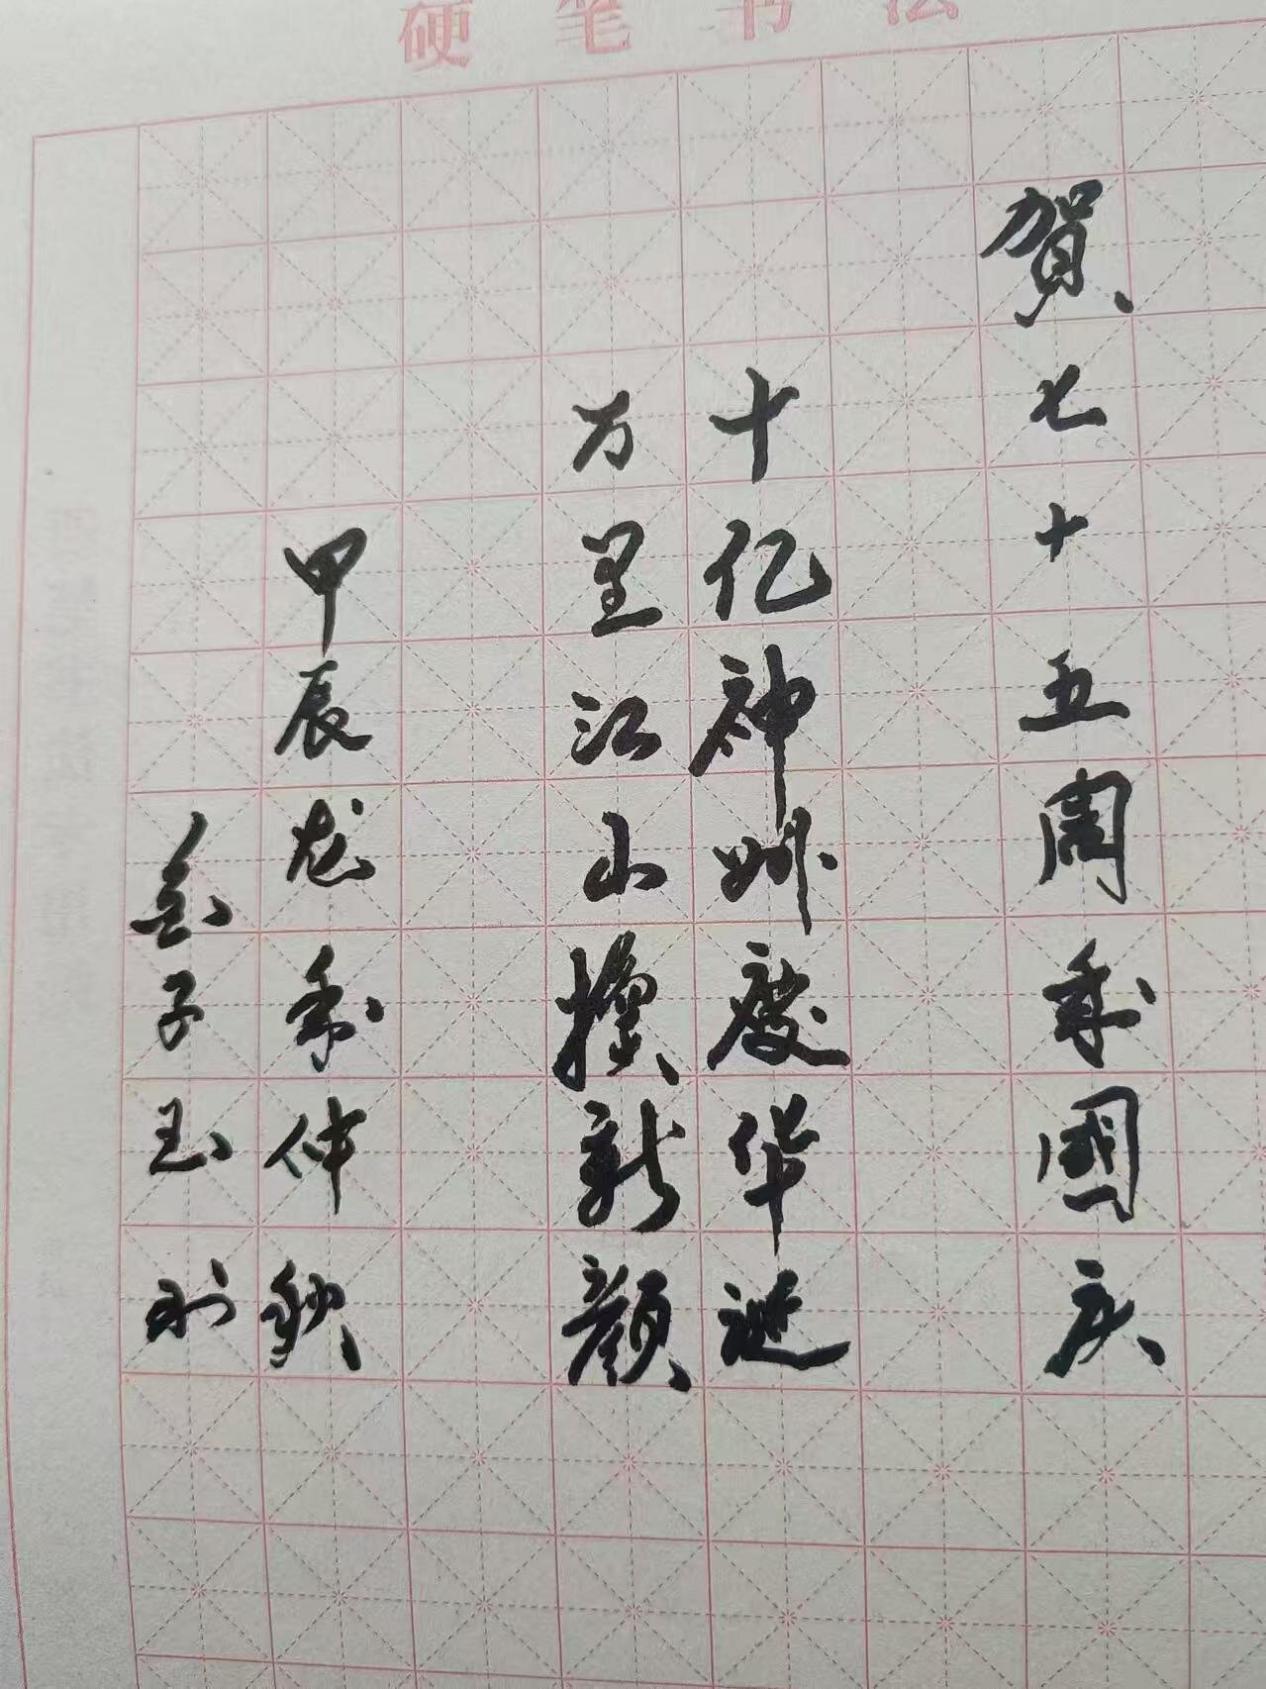 硬笔书法
賀七十五周年國庆
十亿神州庆华诞
万里江山换新颜
甲辰龙年仲秋
子玉